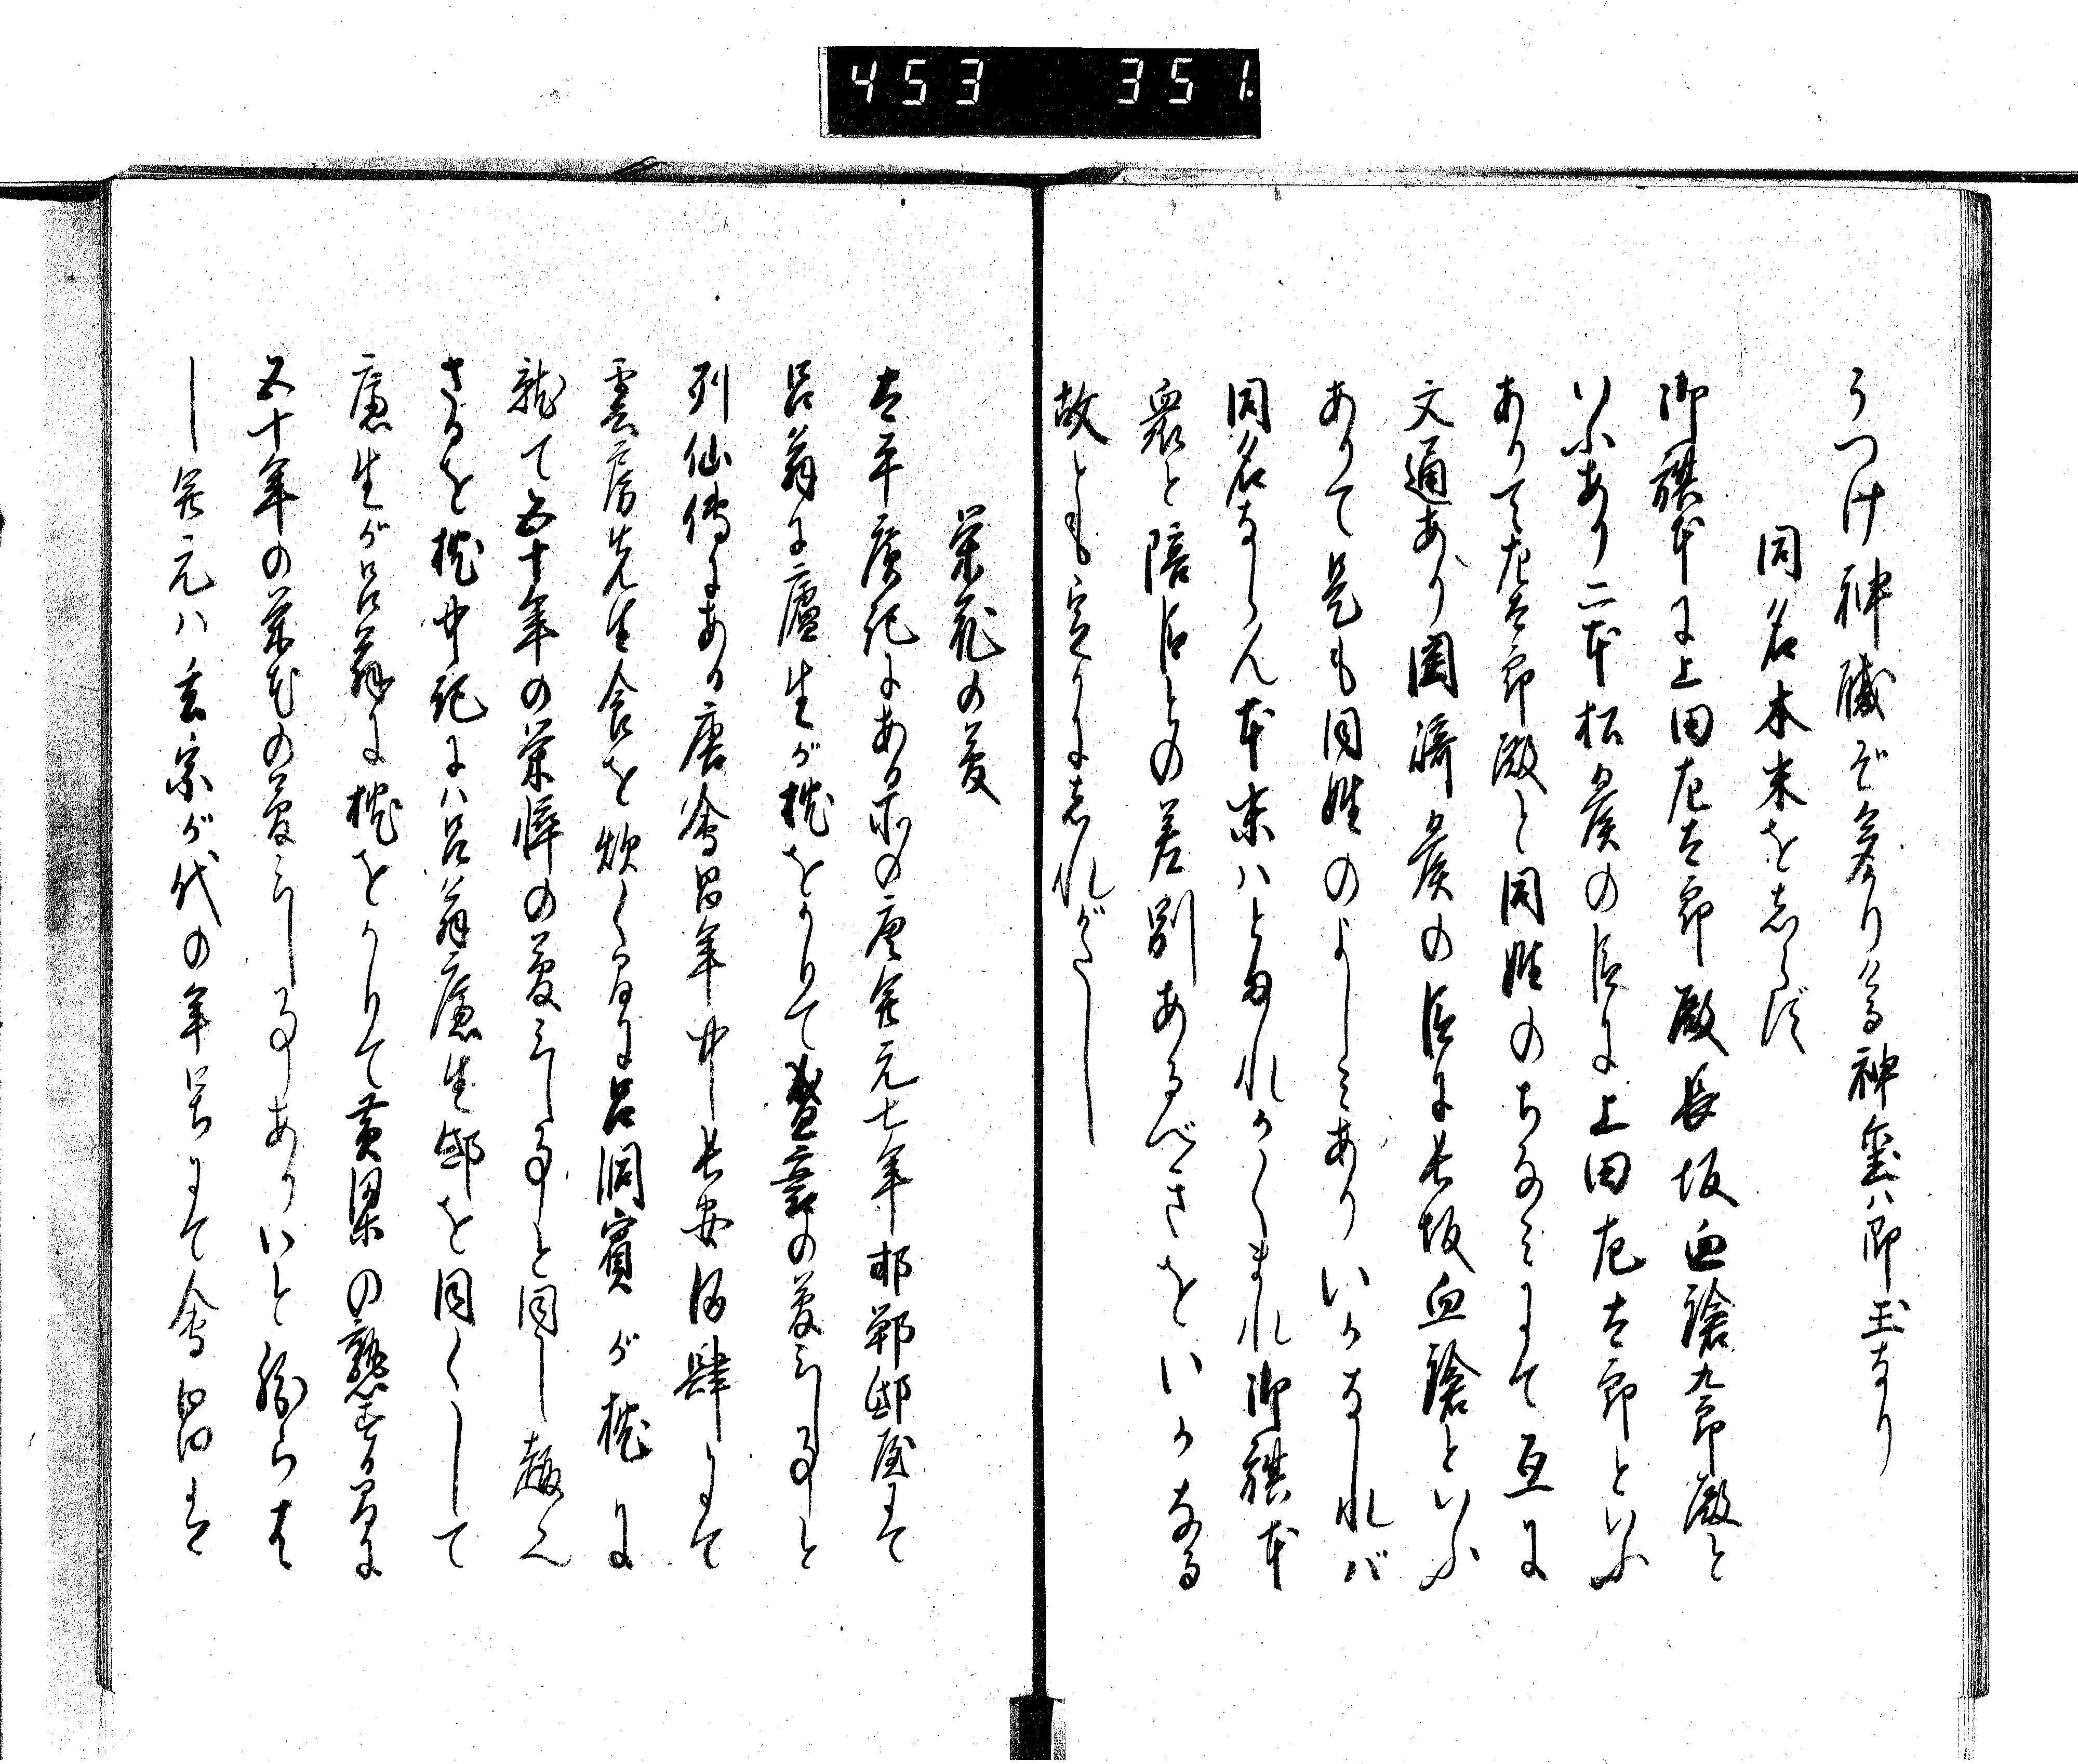 453 351.
うつけ神職ぞ多りける神璽ハ即玉なり
同名本末をしらず
御旗本に上田左太郎殿長坂血鎗九郎殿と
いふあり二本松家の臣に上田左太郎といふ
ありて左太郎殿と同姓のちなみにて互に
文通あり岡崎家の臣に長坂血鎗といふ
ありて是も同姓のよしみありいかなれバ
同名ならん本末ハとまれかくまれ御旗本
衆と陪臣との差別あるべきをいかなる
故とも定かにしれがたし
栄花の夢
太平広記にある所の唐開元七年邯鄲邸屋にて
呂翁に廬生が枕をかりて登臺の夢みし事と
列仙伝にある唐会昌年中長安酒肆にて
雲房先生食を炊く間に呂洞賓が枕に
就て五十年の栄悴の夢みし事と同し趣へ
さるを枕中記にハ呂翁廬生邸を同くして
廬生が呂翁に枕をかりて黄粱の熟する間に
五十年の栄花の夢みし事ありいと紛らは
し開元ハ玄宗が代の年号にて会昌は